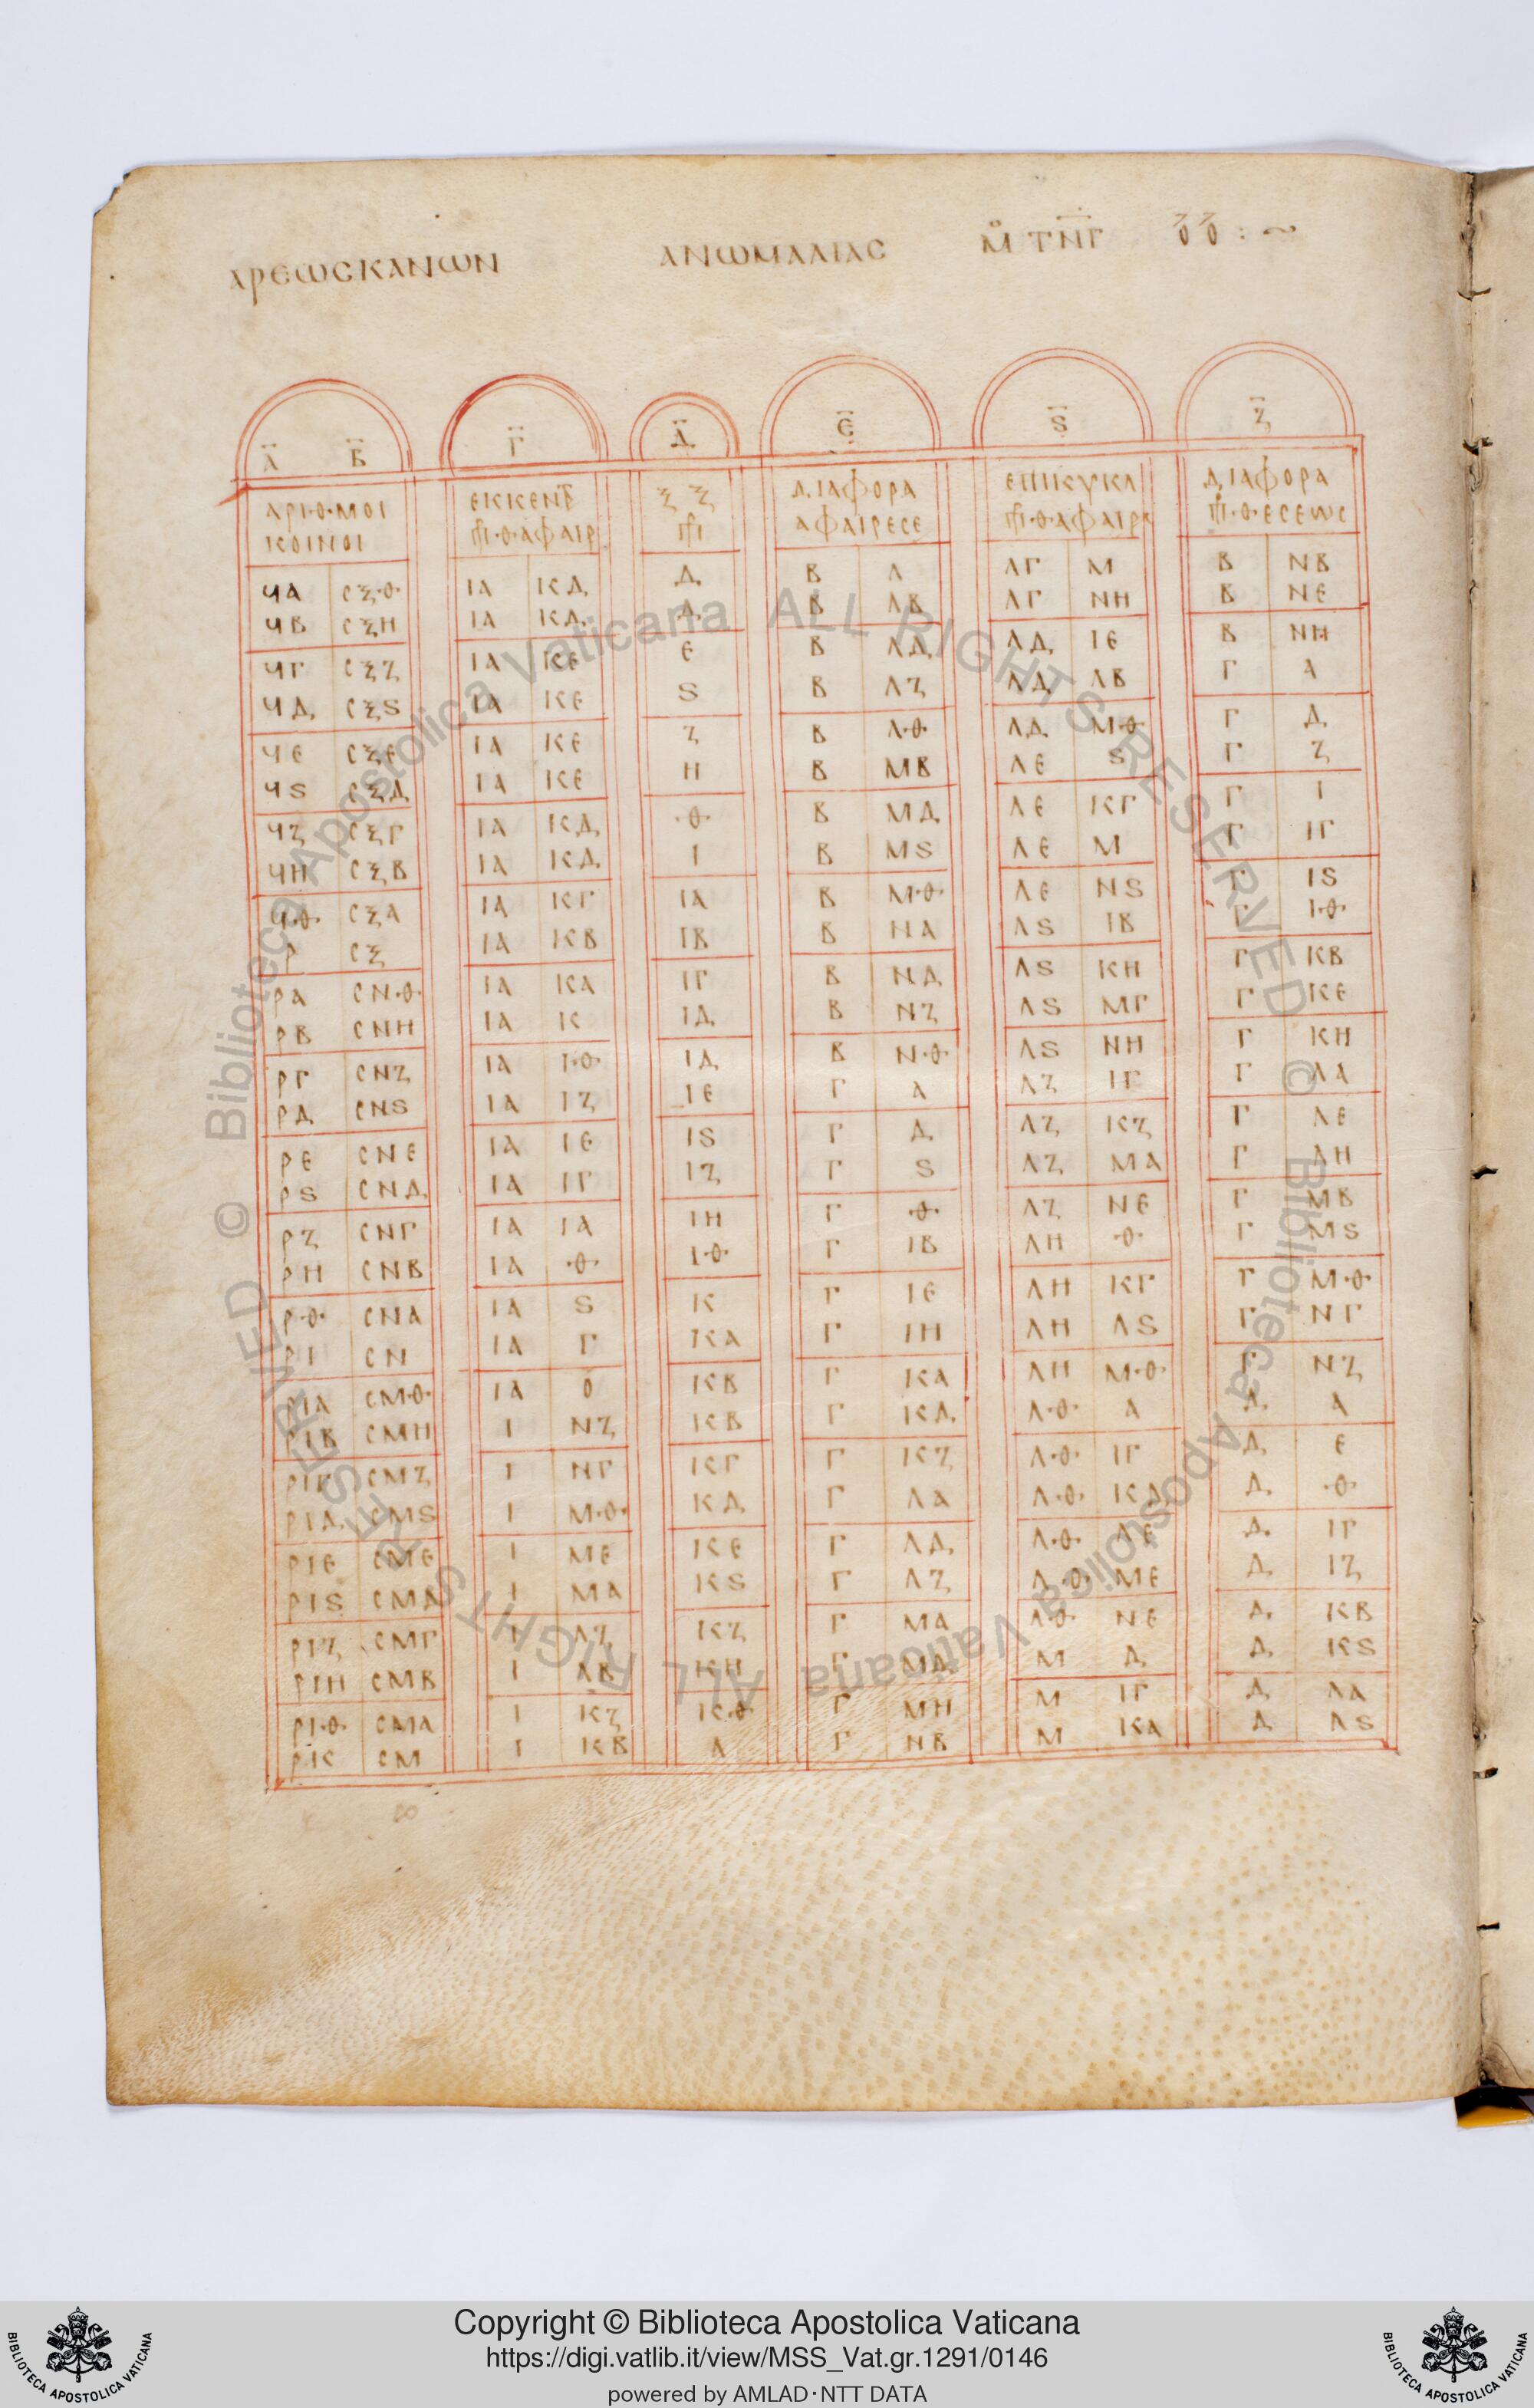 ΑΡΕΩΣ ΚΑΝΩΝ ΑΝΩΜΑΛΙΑΣ Μ̊ ΤΝΓ
Α̅ Β̅ Γ̅ Δ̅ Ε̅ Ϛ̅ Ζ̅
ΑΡΙΘΜΟΙ ΕΚΚΕΝΤΡ ΔΙΑΦΟΡΑ ΕΠΙΚΥΚΛ ΔΙΑΦΟΡΑ
ΚΟΙΝΟΙ ΑΦΑΙΡΕΣΕ
ϤΑ ΣΞΘ ΙΑ ΚΔ Δ Β Λ ΛΓ Μ Β ΝΒ
ϤΒ ΣΞΗ ΙΑ ΚΔ Δ Β ΛΒ ΛΓ ΝΗ Β ΝΕ
ϤΓ ΣΞΖ ΙΑ ΚΕ Ε Β ΛΔ ΛΔ ΙΕ Β ΝΗ
ϤΔ ΣΞϚ ΙΑ ΚΕ Ϛ Β ΛΖ ΛΔ ΛΒ Γ Α
ϤΕ ΣΞΕ ΙΑ ΚΕ Ζ Β ΛΘ ΛΔ ΜΘ Γ Δ
ϤϚ ΣΞΔ ΙΑ ΚΕ Η Β ΜΒ ΛΕ Ϛ Γ Ζ
ϤΖ ΣΞΓ ΙΑ ΚΔ Θ Β ΜΔ ΛΕ ΚΓ Γ Ι
ϤΗ ΣΞΒ ΙΑ ΚΔ Ι Β ΜϚ ΛΕ Μ Γ ΙΓ
ϤΘ ΣΞΑ ΙΑ ΚΓ ΙΑ Β ΜΘ ΛΕ ΝϚ Γ ΙϚ
Ρ ΣΞ ΙΑ ΚΒ ΙΒ Β ΝΑ ΛϚ ΙΒ Γ ΙΘ
ΡΑ ΣΝΘ ΙΑ ΚΑ ΙΓ Β ΝΔ ΛϚ ΚΗ Γ ΚΒ
ΡΒ ΣΝΗ ΙΑ Κ ΙΔ Β ΝΖ ΛϚ ΜΓ Γ ΚΕ
ΡΓ ΣΝΖ ΙΑ ΙΘ ΙΔ Β ΝΘ ΛϚ ΝΗ Γ ΚΗ
ΡΔ ΣΝϚ ΙΑ ΙΖ ΙΕ Γ Α ΛΖ ΙΓ Γ ΛΑ
ΡΕ ΣΝΕ ΙΑ ΙΕ ΙϚ Γ Δ ΛΖ ΚΖ Γ ΛΕ
ΡϚ ΣΝΔ ΙΑ ΙΓ ΙΖ Γ Ϛ ΛΖ ΜΑ Γ ΛΗ
ΡΖ ΣΝΓ ΙΑ ΙΑ ΙΗ Γ Θ ΛΖ ΝΕ Γ ΜΒ
ΡΗ ΣΝΒ ΙΑ Θ ΙΘ Γ ΙΒ ΛΗ Θ Γ ΜϚ
ΡΘ ΣΝΑ ΙΑ Ϛ Κ Γ ΙΕ ΛΗ ΚΓ Γ ΜΘ
ΡΙ ΣΝ ΙΑ Γ ΚΑ Γ ΙΗ ΛΗ ΛϚ Γ ΝΓ
ΡΙΑ ΣΜΘ ΙΑ Ο̄ ΚΒ Γ ΚΑ ΛΗ ΜΘ Γ ΝΖ
ΡΙΒ ΣΜΗ Ι ΝΖ ΚΒ Γ ΚΔ ΛΘ Α Δ Α
ΡΙΓ ΣΜΖ Ι ΝΓ ΚΓ Γ ΚΖ ΛΘ ΙΓ Δ Ε
ΡΙΔ ΣΜϚ Ι ΜΘ ΚΔ Γ ΛΑ ΛΘ ΚΔ Δ Θ
ΡΙΕ ΣΜΕ Ι ΜΕ ΚΕ Γ ΛΔ ΛΘ ΛΕ Δ ΙΓ
ΡΙϚ ΣΜΔ Ι ΜΑ ΚϚ Γ ΛΖ ΛΘ ΜΕ Δ ΙΖ
ΡΙΖ ΣΜΓ Ι ΛΖ ΚΖ Γ ΜΑ ΛΘ ΝΕ Δ ΚΒ
ΡΙΗ ΣΜΒ Ι ΛΒ ΚΗ Γ ΜΔ Μ Δ Δ ΚϚ
ΡΙΘ ΣΜΑ Ι ΚΖ ΚΘ Γ ΜΗ Μ ΙΓ Δ ΛΑ
ΡΚ ΣΜ Ι ΚΒ Λ Γ ΝΒ Μ ΚΑ Δ ΛϚ
© Biblioteca Apostolica Vaticana ALL RIGHTS RESERVED © Biblioteca Apostolica Vaticana ALL RIGHTS RESERVED
Copyright © Biblioteca Apostolica Vaticana
https://digi.vatlib.it/view/MSS_Vat.gr.1291/0146
powered by AMLAD·NTT DATA
BIBLIOTECA APOSTOLICA VATICANA
BIBLIOTECA APOSTOLICA VATICANA